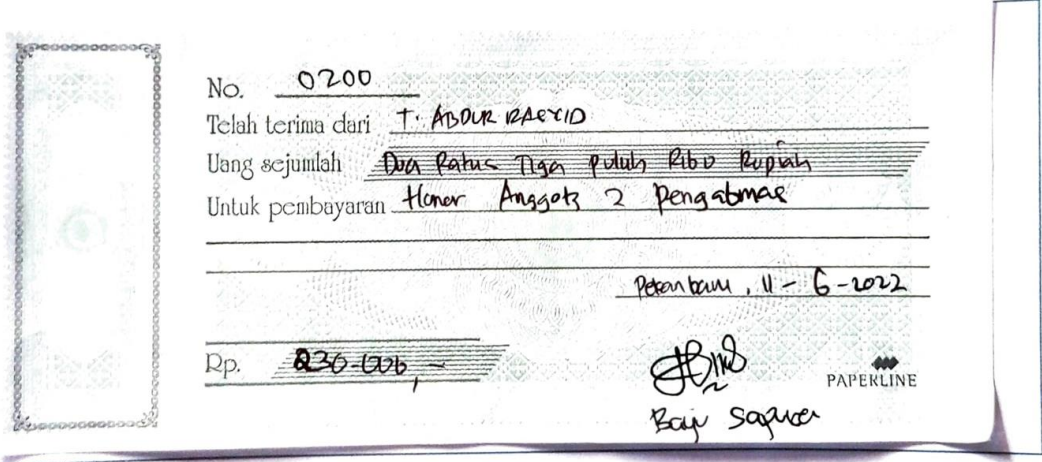 No. 0200
Telah terima dari T. ABDUR RASYID
Uang sejumlah Dua Ratus Tiga puluh Ribu Rupiah
Untuk pembayaran Honor Anggota 2 Pengabmas
Pekanbaru, 11 - 6 - 2022
Rp. 230.000,-
PAPERLINE